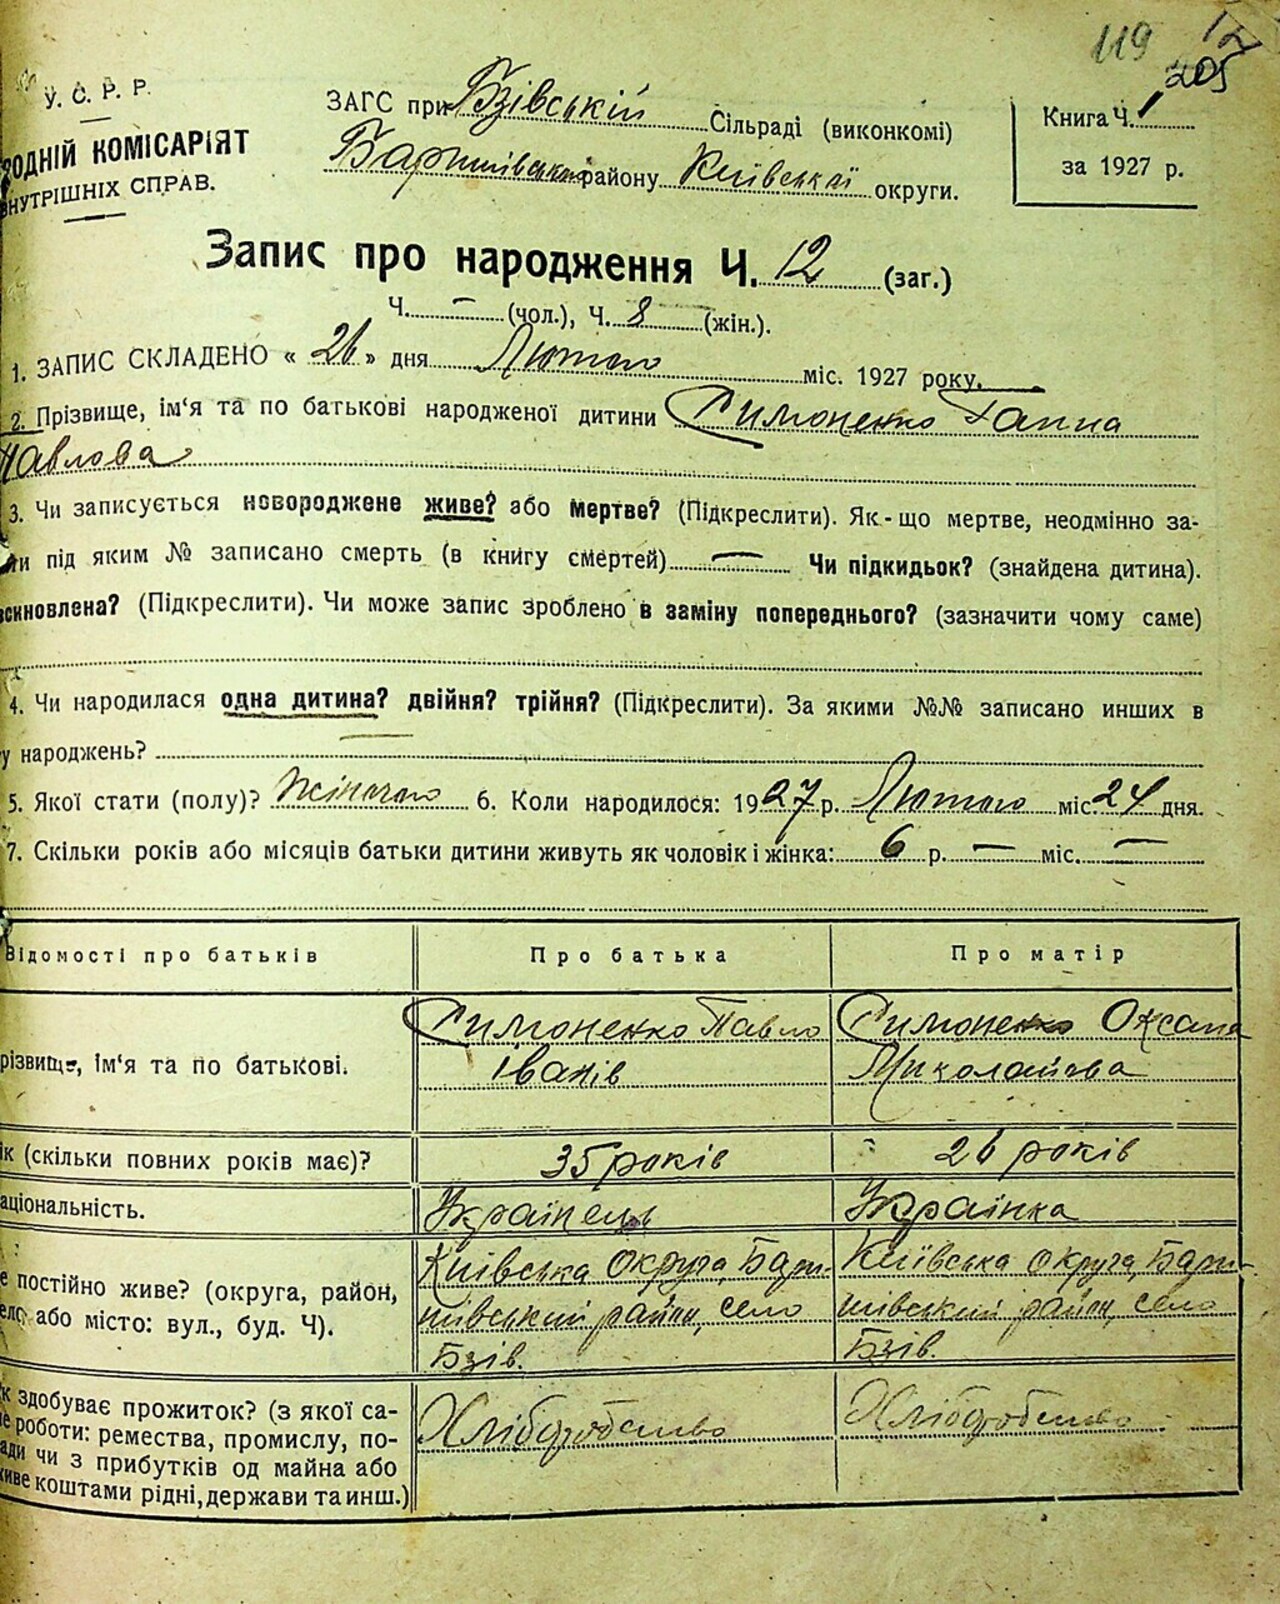 119 12
205
У. С. Р. Р.
РОДНІЙ КОМІСАРІЯТ
ВНУТРІШНІХ СПРАВ.
ЗАГС при Бзівській Сільраді (виконкомі)
Баришівського району Київської округи.
Книга Ч. 1
за 1927 р.
Запис про народження Ч. 12 (заг.)
Ч. — (чол.), Ч. 8 (жін.).
1. ЗАПИС СКЛАДЕНО « 26 » дня Лютого міс. 1927 року.
2. Прізвище, ім'я та по батькові народженої дитини Симоненко Ганна
Павлова
3. Чи записується новороджене живе? або мертве? (Підкреслити). Як-що мертве, неодмінно за-
ти під яким № записано смерть (в книгу смертей) — Чи підкидьок? (знайдена дитина).
всиновлена? (Підкреслити). Чи може запис зроблено в заміну попереднього? (зазначити чому саме)
4. Чи народилася одна дитина? двійня? трійня? (Підкреслити). За якими №№ записано инших в
у народжень?
5. Якої стати (полу)? Жіночого 6. Коли народилося: 1927 р. Лютого міс. 24 дня.
7. Скільки років або місяців батьки дитини живуть як чоловік і жінка: 6 р. — міс. —
Відомості про батьків Про батька Про матір
різвище, ім'я та по батькові. Симоненко Павло Симоненко Оксана
Іванів Миколаєва
ік (скільки повних років має)? 35 років 26 років
аціональність. Українець Українка
е постійно живе? (округа, район, Київська округа, Бари- Київська округа, Бари-
село або місто: вул., буд. Ч). шівський район, село шівський район, село
Бзів. Бзів.
к здобуває прожиток? (з якої са-
ме роботи: ремества, промислу, по- Хліборобство Хліборобство
ади чи з прибутків од майна або
живе коштами рідні, держави та инш.)